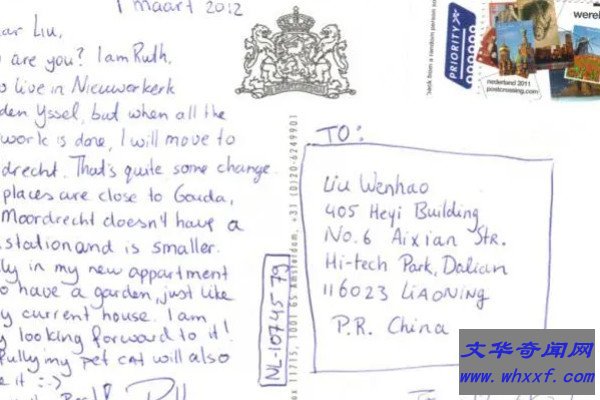 1 maart 2012
Liu,
are you? I am Ruth,
live in Nieuwerkerk
den Yssel, but when all the
work is done, I will move to
drecht. That's quite some change.
places are close to Gouda,
Moordrecht doesn't have a
station and is smaller.
in my new appartment
have a garden, just like
current house. I am
looking forward to it!
my pet cat will also
it :-)
PRIORITY
nederland 2011
postcrossing.com
TO:
Liu Wenhao
405 Heyi Building
No. 6 Aixian Str.
Hi-tech Park, Dalian
116023 LIAONING
P.R. China
NL-1074579
1715, 1001 GS Amsterdam, +31 (0)20-6249901
文华奇闻网
www.whxxf.com